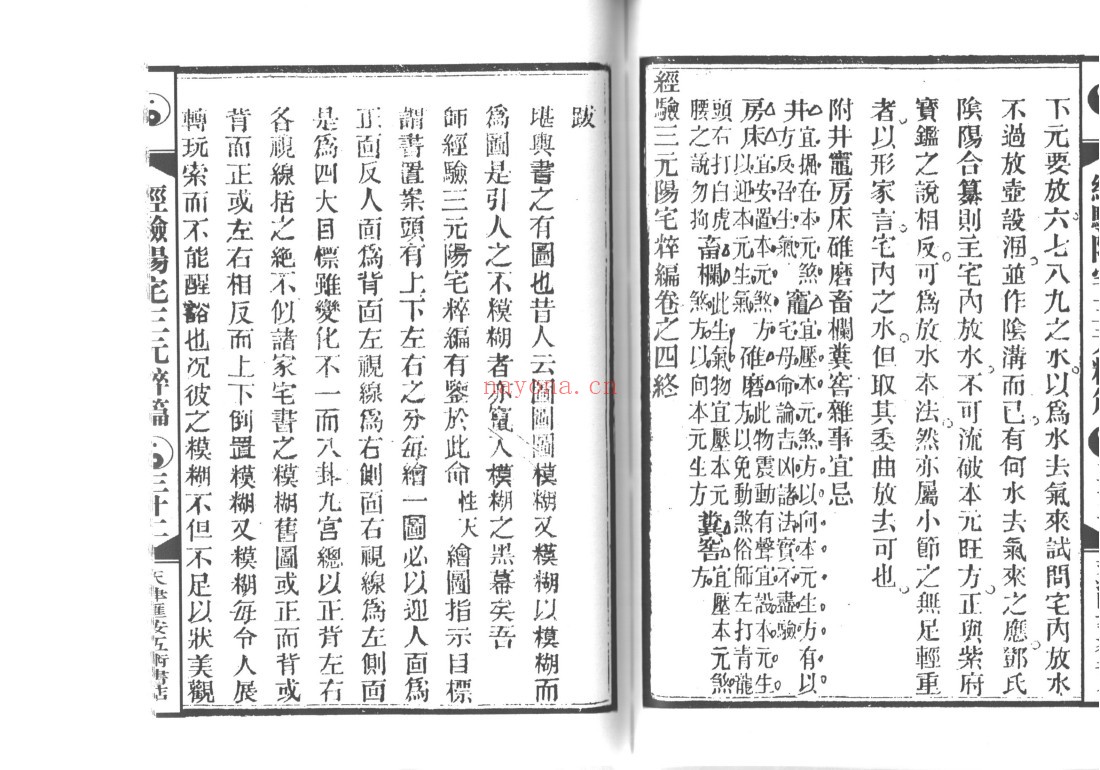 下元要放六七八九之水以爲水去氣來試問宅內放水
不過放壺設涸並作陰溝而已有何水去氣來之應鄧氏
陰陽合纂則主宅內放水不可流破本元旺方正與紫府
寶鑑之說相反可爲放水本法然亦屬小節之無足輕重
者以形家言宅內之水但取其委曲放去可也
附井竈房床碓磨畜欄糞窖雜事宜忌
井宜掘在本元煞方反召生氣
竈宜壓本元煞方以向本元生方有以宅母命論吉凶諸法實不盡驗
房床宜安置本元煞方以迎本元生氣
碓磨此物震動有聲宜設本元生方以免動煞俗師左打青龍頭右打白虎腰之說勿拘
畜欄此生氣物宜壓本元煞方以向本元生方
糞窖宜壓本元煞方
經驗三元陽宅粹編卷之四終
跋
堪輿書之有圖也昔人云圖圖圖模糊又模糊以模糊而
爲圖是引人之不模糊者亦竄入模糊之黑幕矣吾
師經驗三元陽宅粹編有鑒於此命性天繪圖指示目標
謂書置案頭有上下左右之分每繪一圖必以迎人面爲
正面反人面爲背面左視線爲右側面右視線爲左側面
是爲四大目標雖變化不一而八卦九宮總以正背左右
各視線括之絕不似諸家宅書之模糊舊圖或正而背或
背而正或左右相反而上下倒置模糊又模糊每令人展
轉玩索而不能醒豁也况彼之模糊不但不足以狀美觀
經驗陽宅三元粹篇
三十二
天津匯安五術書店
nayona.cn